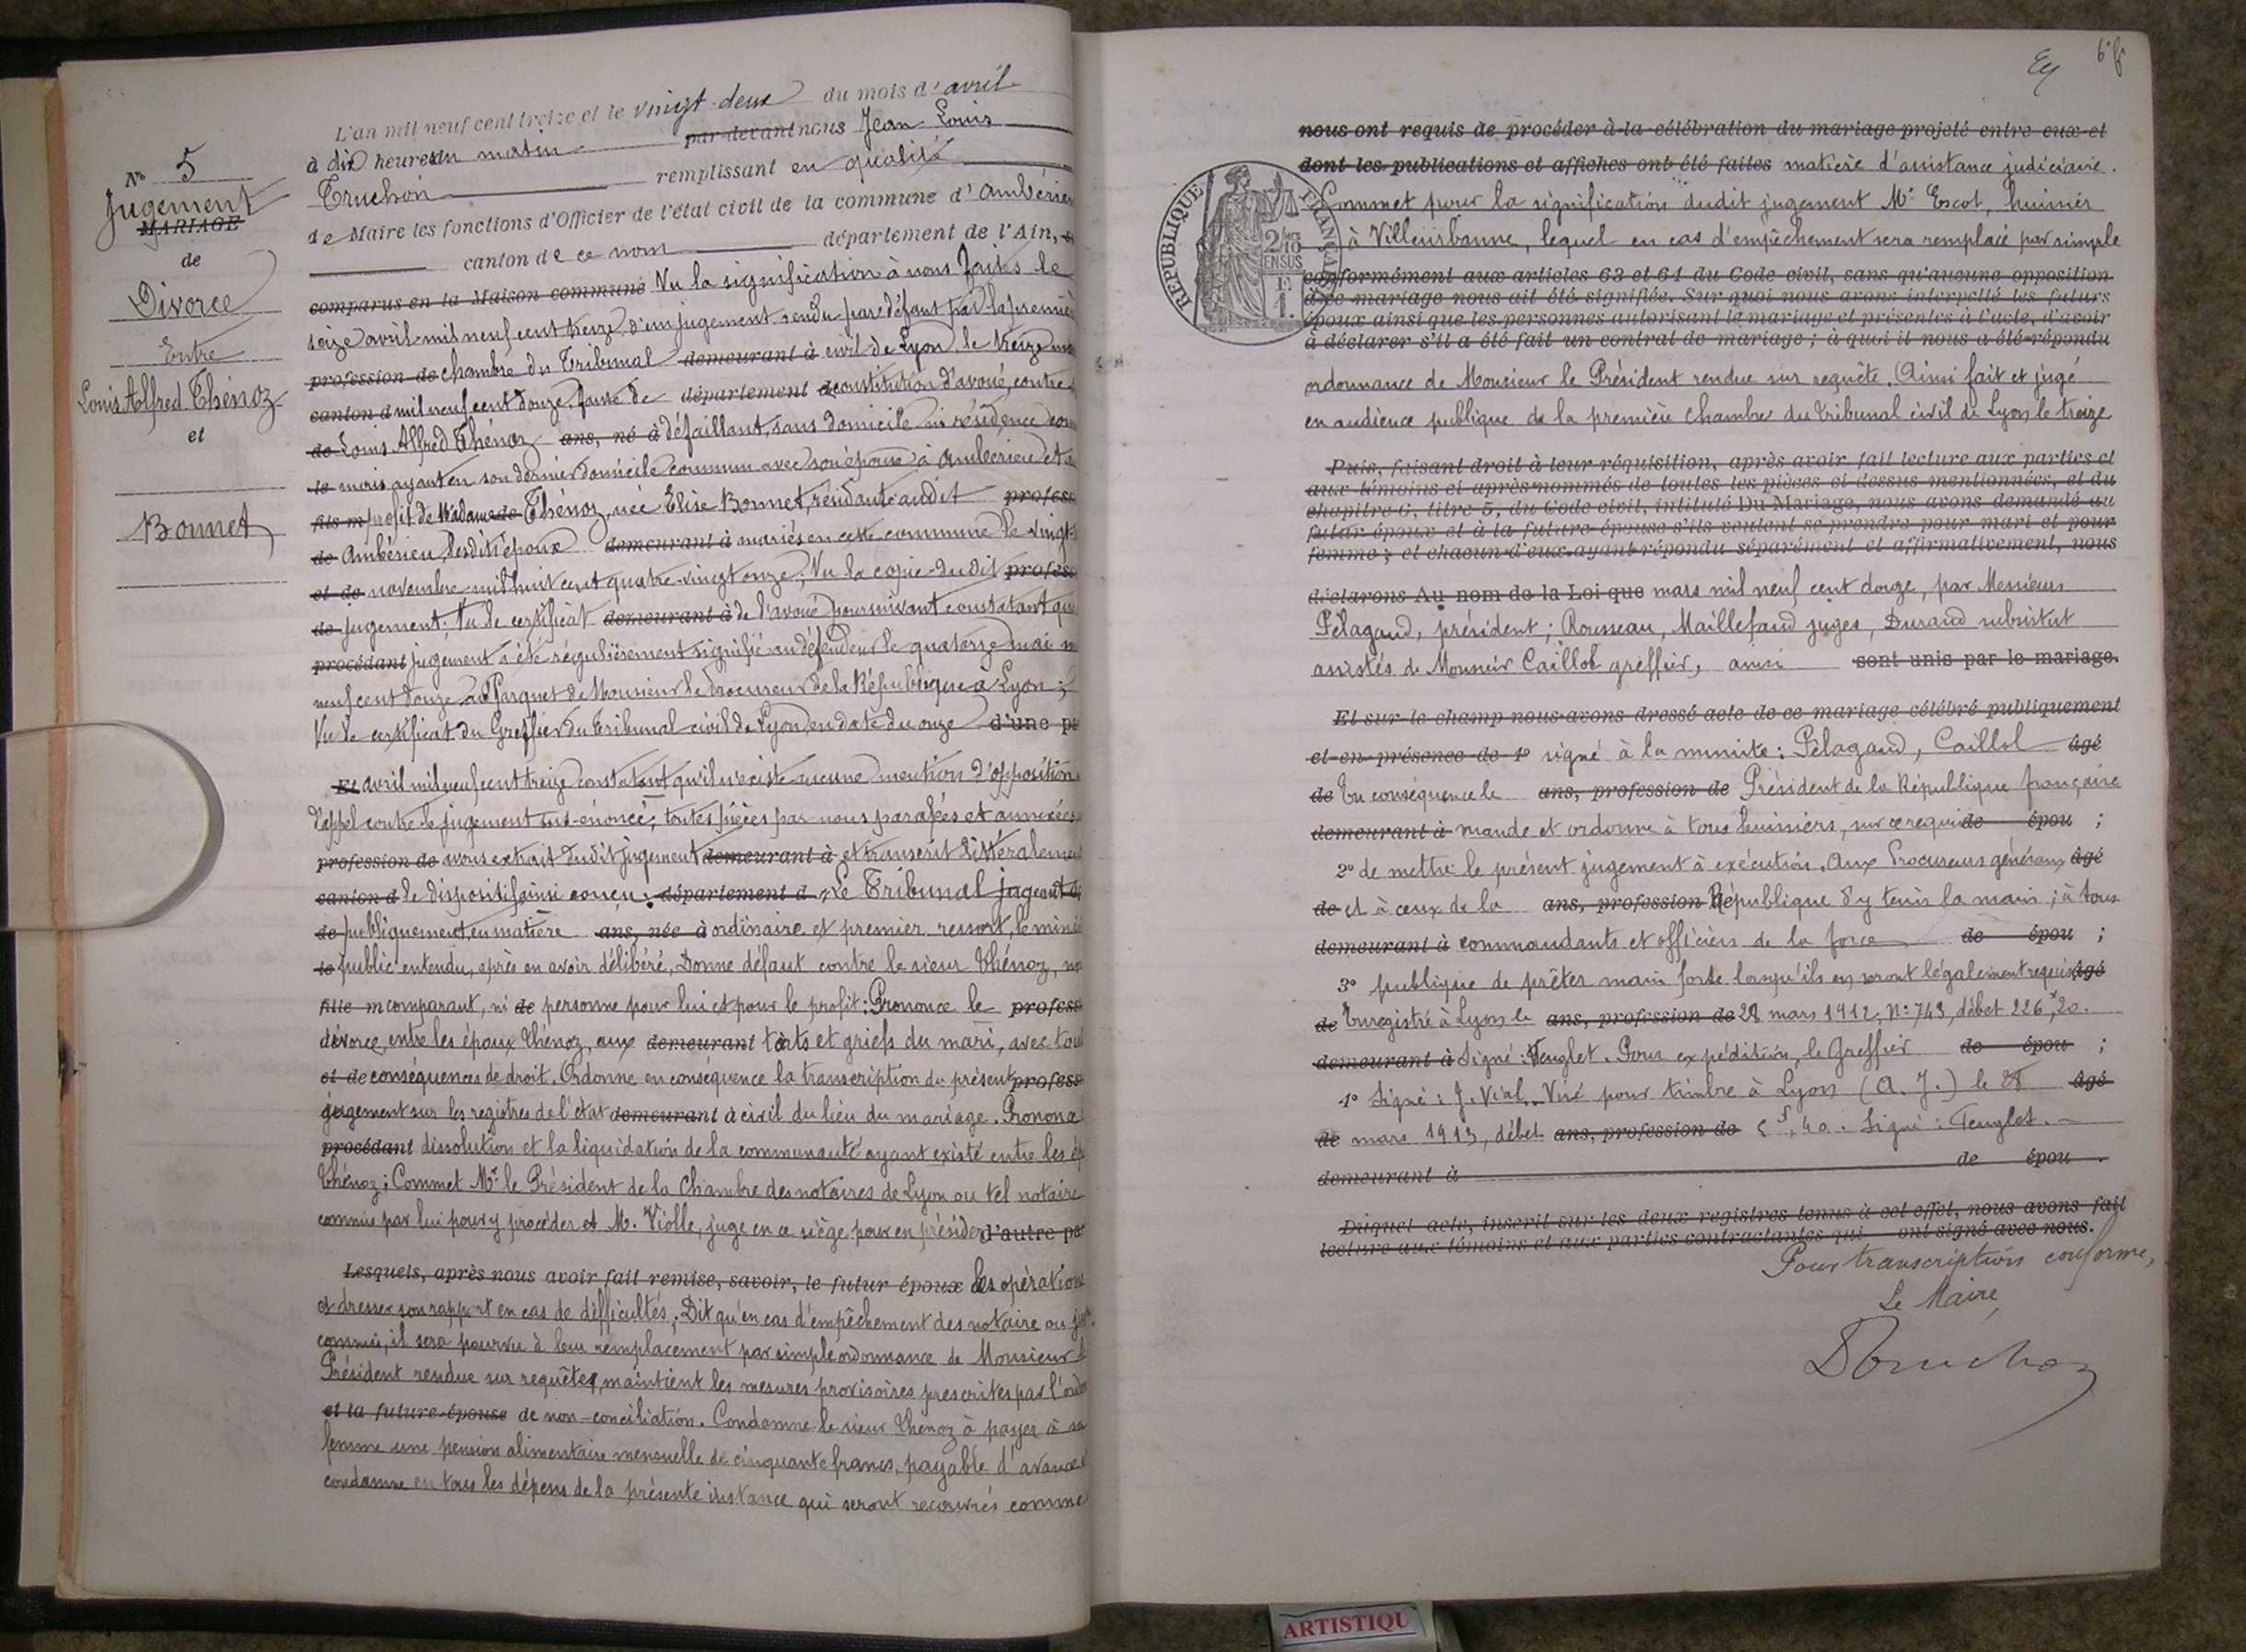 N° 5
Jugement
MARIAGE
de
Divorce
Entre
Louis Alfred Thénoz
et
Bonnet
L'an mil neuf cent treize et le vingt-deux du mois d'avril
à dix heures du matin par-devant nous Jean Louis
Truchon remplissant en qualité
de Maire les fonctions d'Officier de l'état civil de la commune d'Ambérieu
canton de ce nom département de l'Ain,
comparus en la Maison commune Vu la signification à nous faite le
seize avril mil neuf cent treize d'un jugement rendu par défaut par la première
profession de chambre du Tribunal demeurant à civil de Lyon, le treize
canton d mil neuf cent douze, faute de département d constitution d'avoué, contre
de Louis Alfred Thénoz ans, né à défaillant, sans domicile ni résidence
le mais ayant eu son dernier domicile commun avec son épouse à Ambérieu et
fils m profit de Madame de Thénoz, née Elise Bonnet, résidante audit profess
de Ambérieu, lesdits époux demeurant à mariés en cette commune le vingt-
et de novembre mil huit cent quatre-vingt onze; Vu la copie dudit profess
de jugement; Vu le certificat demeurant à de l'avoué poursuivant constatant que
procédant jugement a été régulièrement signifié au défendeur le quatorze mai
neuf cent douze au Parquet de Monsieur le Procureur de la République à Lyon;
Vu le certificat du Greffier du Tribunal civil de Lyon, en date du onze d'une pa
Et avril mil neuf cent treize constatant qu'il n'existe aucune mention d'opposition
d'appel contre le jugement sus-énoncé; toutes pièces par nous parafées et annexées
profession de avons extrait dudit jugement demeurant à et transcrit littéralement
canton d le dispositif ainsi conçu: département d "Le Tribunal jugeant
de publiquement, en matière ans, née à ordinaire et premier ressort, le minis
le public entendu, après en avoir délibéré, Donne défaut contre le sieur Thénoz, no
fille m comparant, ni de personne pour lui et pour le profit: Prononce le profess
divorce, entre les époux Thénoz, aux demeurant torts et griefs du mari, avec tou
et de conséquences de droit. Ordonne en conséquence la transcription du présent profess
jugement sur les registres de l'état demeurant à civil du lieu du mariage. Prononce
procédant dissolution et la liquidation de la communauté ayant existé entre les ép
Thénoz; Commet Mr le Président de la Chambre des notaires de Lyon ou tel notaire
commis par lui pour y procéder et M. Violle, juge en ce siège pour en présider d'autre pa
Lesquels, après nous avoir fait remise, savoir, le futur époux les opérations
et dresser son rapport en cas de difficultés; Dit qu'en cas d'empêchement des notaire ou juge
commis, il sera pourvu à leur remplacement par simple ordonnance de Monsieur le
Président rendue sur requête, maintient les mesures provisoires prescrites par l'ordon
et la future épouse de non-conciliation. Condamne le sieur Thénoz à payer à sa
femme une pension alimentaire mensuelle de cinquante francs, payable d'avance
condamne en tous les dépens de la présente instance qui seront recouvrés comme
nous ont requis de procéder à la célébration du mariage projeté entre eux et
dont les publications et affiches ont été faites matière d'assistance judiciaire.
Commet pour la signification dudit jugement Me Escot, huissier
à Villeurbanne, lequel en cas d'empêchement sera remplacé par simple
conformément aux articles 63 et 64 du Code civil, sans qu'aucune opposition
à ce mariage nous ait été signifiée. Sur quoi nous avons interpellé les futurs
époux ainsi que les personnes autorisant le mariage et présentes à l'acte, d'avoir
à déclarer s'il a été fait un contrat de mariage; à quoi il nous a été répondu
RÉPUBLIQUE FRANÇAISE
2/10
EN SUS
1 F.
ordonnance de Monsieur le Président rendue sur requête. Ainsi fait et jugé
en audience publique de la première chambre du tribunal civil de Lyon le treize
Puis, faisant droit à leur réquisition, après avoir fait lecture aux parties et
aux témoins ci après nommés de toutes les pièces ci dessus mentionnées, et du
chapitre 6, titre 5, du Code civil, intitulé Du Mariage, nous avons demandé au
futur époux et à la future épouse s'ils veulent se prendre pour mari et pour
femme; et chacun d'eux ayant répondu séparément et affirmativement, nous
déclarons Au nom de la Loi que mars mil neuf cent douze, par Messieurs
Pélagaud, président; Rousseau, Maillefaud juges, Durand substitut
assistés de Monsieur Caillol greffier, ainsi sont unis par le mariage.
Et sur-le-champ nous avons dressé acte de ce mariage célébré publiquement
et en présence de 1° signé à la minute: Pélagaud, Caillol âgé
de En conséquence le ans, profession de Président de la République française
demeurant à mande et ordonne à tous huissiers, sur ce requis de épou ;
2° de mettre le présent jugement à exécution. Aux Procureurs généraux âgé
de et à ceux de la ans, profession République d'y tenir la main; à tous
demeurant à commandants et officiers de la force de épou ;
3° publique de prêter main forte lorsqu'ils en seront légalement requis âgé
de Enregistré à Lyon le ans, profession de 28 mars 1912, N° 743, débet 226f,20.
demeurant à Signé: Fenglet. Pour expédition, le Greffier de épou ;
4° Signé: J. Vial. Visé pour timbre à Lyon (A. J.) le 28 âgé
de mars 1913, débet ans, profession de 5f,40. Signé: Fenglet.
demeurant à de épou .
Duquel acte, inscrit sur les deux registres tenus à cet effet, nous avons fait
lecture aux témoins et aux parties contractantes qui ont signé avec nous.
Pour transcription conforme,
Le Maire,
Truchon
ARTISTIQU